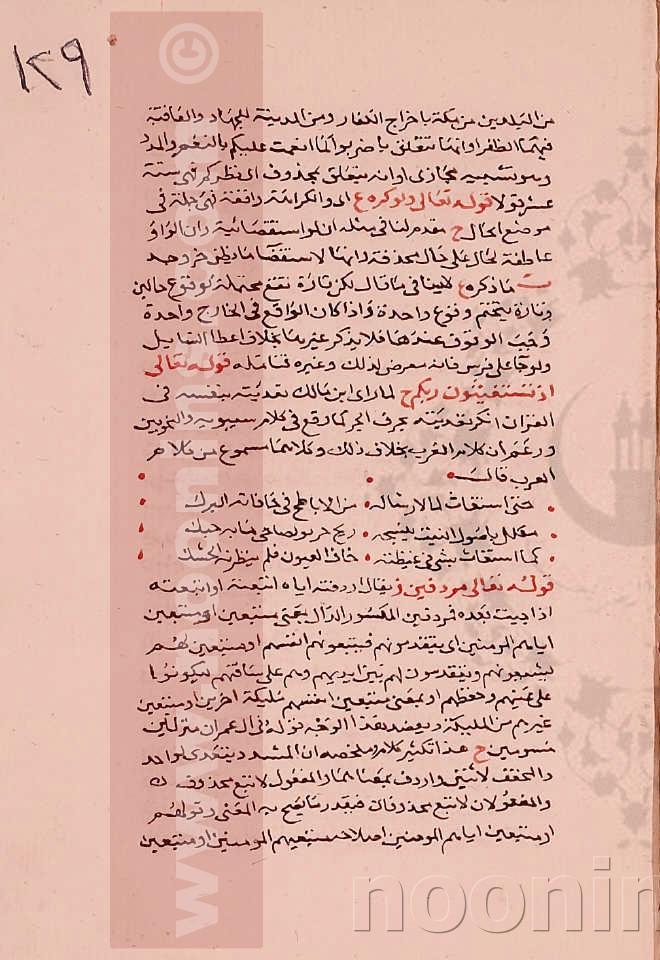 ١٢٩
من البلدين من مكة باخراج الكفار ومن المدينة للجهاد والعاقبة
فيهما الظفر او انها تتعلق باضربوا لما انعمت عليكم بالنصر والمدد
وهو تشبيه مجازي او انه يتعلق بمحذوف اي
عشر قولا قوله تعالى ولو كره ع اي والكراهة واقعة فهي جملة في
موضع الحال ح تقدم لنا في مثله ان لو استقصائية وان الواو
عاطفة لحال على حال محذوفة وانها لاستقصا
ت ما ذكره ع فيما قال لكن تارة تقع محتملة لوقوع حالين
وتارة يتحتم وقوع واحدة واذا كان الواقع في الخارج واحدة
وجب الوقوف عندها فلا يذكر غيرها بخلاف اعطا السايل
ولو جا على فرس فانه معرض لذلك وغيره فتامله قوله تعالى
اذ تستغيثون ربكم ح لما راى ابن مالك تعديته بنفسه في
القران انكر تعديته بحرف الجر كما وقع في كلام سيبويه والنحويين
وزعم ان كلام العرب بخلاف ذلك وكلاهما مسموع من كلام
العرب قال
حتى استغاث بما لا رشاء له من الاباطح في حافاته البرك
مكلل باصول النبت تنسجه ريح خريق لضاحي مائه حبك
كما استغاث بشي فز غيطلة خاف العيون فلم ينظر به الحشك
قوله تعالى مردفين ز يقال اردفته اياه اتبعته او اتبعته
اذا جيت بعده فمردفين المكسور الدال بمعنى متبعين او متبعين
اياهم المومنين اي يتقدمونهم فيتبعونهم انفسهم او متبعين لهم
يشيعونهم ويتقدمون لهم بين ايديهم وهم على ساقتهم ليكونوا
على عينهم وحفظهم او بمعنى متبعين انفسهم مليكة اخرين او متبعين
غيرهم من المليكة ويعضد هذا الوجه قوله في ال عمران منزلين
مسومين ح هذا تكثير كلام وملخصه ان المشدد يتعدى لواحد
والمخفف لاثنين واردف بمعناهما والمفعول لاتبع محذوف
والمفعولان لاتبع محذوفان فيقدر ما يصح به المعنى وقولهم
او متبعين اياهم المومنين اصلاح متبعيهم المومنين او متبعين
noonin